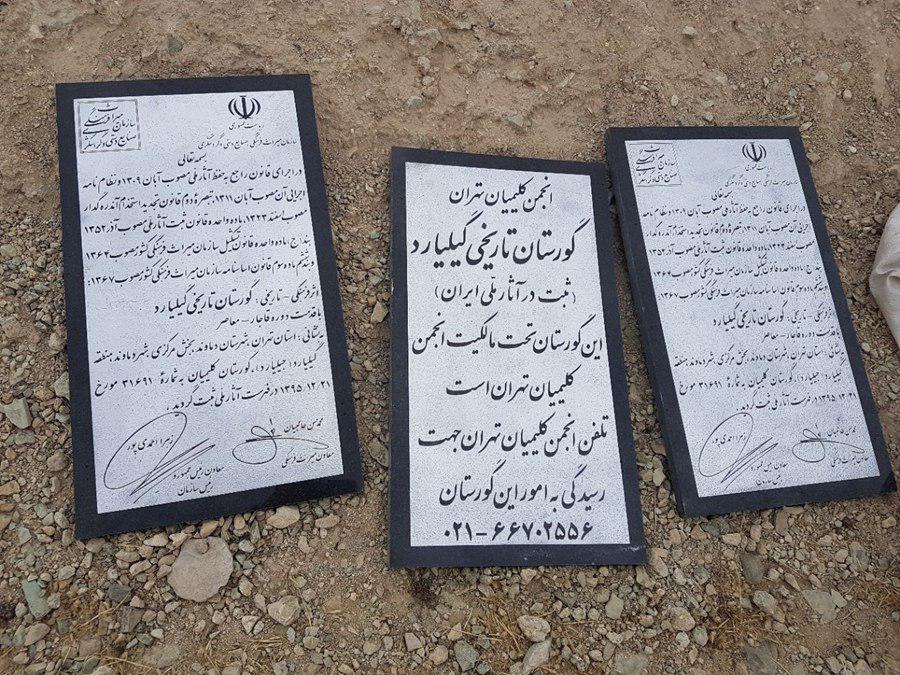 سازمان میراث فرهنگی
صنایع دستی و گردشگری
ریاست جمهوری
سازمان میراث فرهنگی صنایع دستی و گردشگری
بسمه تعالی
در اجرای قانون راجع به حفظ آثار ملی مصوب آبان ۱۳۰۹ و نظام نامه
اجرایی آن آبان ۱۳۱۱، تبصره دوم قانون تجدید استخدام آندره گدار
مصوب اسفند ۱۳۲۳، ماده واحده قانون ثبت آثار ملی مصوب آذر ۱۳۵۲
بند ا ج، ماده واحده قانون تشکیل سازمان میراث فرهنگی کشور مصوب ۱۳۶۴
و بند ششم ماده سوم قانون اساسنامه سازمان میراث فرهنگی کشور مصوب ۱۳۶۷:
اثر فرهنگی - تاریخی: گورستان تاریخی گیلیارد
با قدمت دوره قاجار - معاصر
بنشانی: استان تهران، شهرستان دماوند، بخش مرکزی، شهر دماوند، منطقه
گیلیارد (جیلیارد)، گورستان کلیمیان به شماره ۳۱۶۹۱ مورخ
۱۳۹۵.۱۲.۲۱ در فهرست آثار ملی ثبت گردید.
محمدحسن طالبیان
معاون میراث فرهنگی
زهرا احمدی پور
معاون رئیس جمهور و
رئیس سازمان
انجمن کلیمیان تهران
گورستان تاریخی گیلیارد
(ثبت در آثار ملی ایران)
این گورستان تحت مالکیت انجمن
کلیمیان تهران است
تلفن انجمن کلیمیان تهران جهت
رسیدگی به امور این گورستان
۰۲۱-۶۶۷۰۲۵۵۶
سازمان میراث فرهنگی
صنایع دستی و گردشگری
ریاست جمهوری
سازمان میراث فرهنگی صنایع دستی و گردشگری
بسمه تعالی
در اجرای قانون راجع به حفظ آثار ملی مصوب آبان ۱۳۰۹ و نظام نامه
اجرایی آن آبان ۱۳۱۱، تبصره دوم قانون تجدید استخدام آندره گدار
مصوب اسفند ۱۳۲۳، ماده واحده قانون ثبت آثار ملی مصوب آذر ۱۳۵۲
بند ا ج، ماده واحده قانون تشکیل سازمان میراث فرهنگی کشور مصوب ۱۳۶۴
و بند ششم ماده سوم قانون اساسنامه سازمان میراث فرهنگی کشور مصوب ۱۳۶۷:
اثر فرهنگی - تاریخی: گورستان تاریخی گیلیارد
با قدمت دوره قاجار - معاصر
بنشانی: استان تهران، شهرستان دماوند، بخش مرکزی، شهر دماوند، منطقه
گیلیارد (جیلیارد)، گورستان کلیمیان به شماره ۳۱۶۹۱ مورخ
۱۳۹۵.۱۲.۲۱ در فهرست آثار ملی ثبت گردید.
محمدحسن طالبیان
معاون میراث فرهنگی
زهرا احمدی پور
معاون رئیس جمهور و
رئیس سازمان